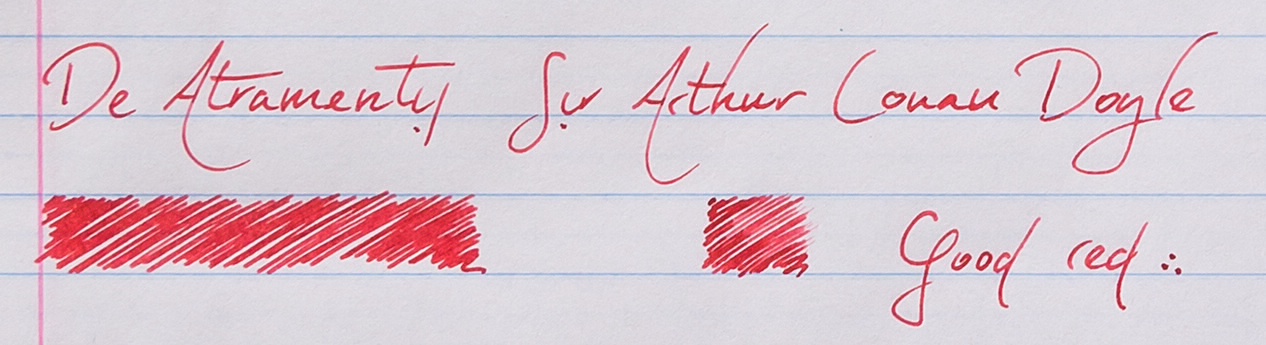 De Atramentis Sir Arthur Conan Doyle
Good red ∴